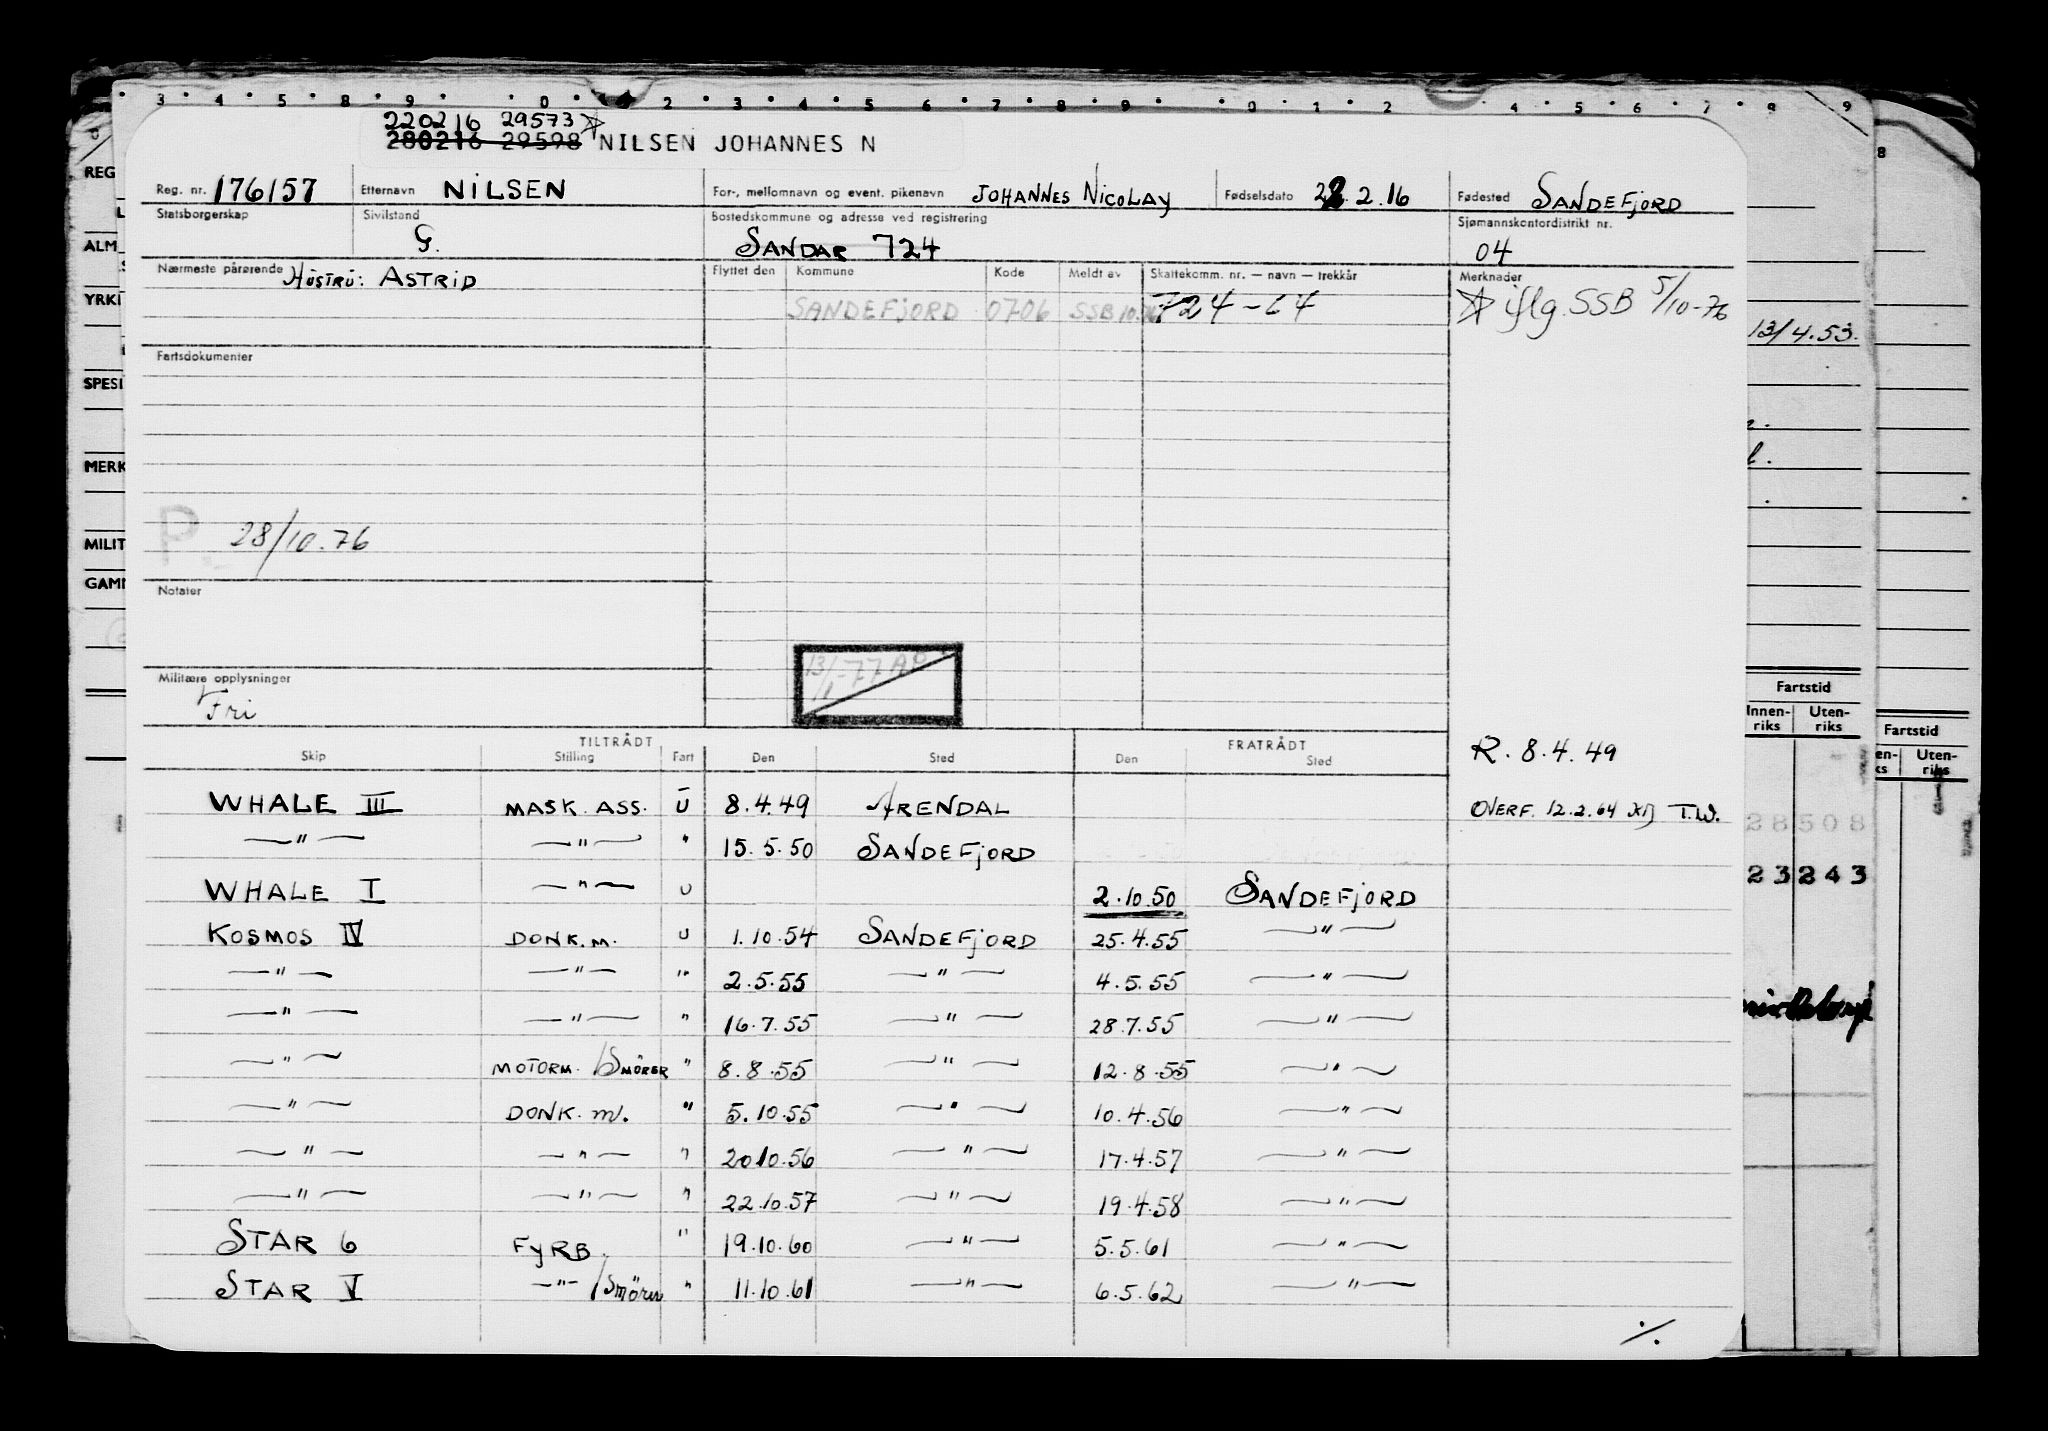 3 4 5 8 9 0 2 3 4 5 6 7 8 9 0 1 2 4 5 6 7 8 9
220216 29573 ☆
280216 29598 NILSEN JOHANNES N
Reg. nr. 176157 Etternavn NILSEN For-, mellomnavn og event. pikenavn JOHANNES NICOLAY Fødselsdato 22.2.16 Fødested SANDEFJORD
Statsborgerskap Sivilstand G. Bostedskommune og adresse ved registrering SANDAR 724 Sjømannskontordistrikt nr. 04
Nærmeste pårørende HUSTRU: ASTRID Flyttet den Kommune Kode Meldt av Skattekomm. nr. — navn — trekkår Merknader
SANDEFJORD 0706 SSB 10. 724-64 ☆ iflg. SSB 5/10-76
Fartsdokumenter
P. 28/10.76
Notater
13/1-77
Militære opplysninger
Fri
TILTRÅDT FRATRÅDT R. 8.4.49
Skip Stilling Fart Den Sted Den Sted
WHALE III MASK. ASS. U 8.4.49 ARENDAL OVERF. 12.2.64 T.W.
—"— —"— " 15.5.50 SANDEFJORD
WHALE I —"— U 2.10.50 SANDEFJORD
KOSMOS IV DONK.M. U 1.10.54 SANDEFJORD 25.4.55 —"—
—"— —"— " 2.5.55 —"— 4.5.55 —"—
—"— —"— " 16.7.55 —"— 28.7.55 —"—
—"— MOTORM./SMÖRER " 8.8.55 —"— 12.8.55 —"—
—"— DONK.M. " 5.10.55 —"— 10.4.56 —"—
—"— —"— " 20.10.56 —"— 17.4.57 —"—
—"— —"— " 22.10.57 —"— 19.4.58 —"—
STAR 6 FYRB. " 19.10.60 —"— 5.5.61 —"—
STAR V —"—/Smörer " 11.10.61 —"— 6.5.62 —"—
./.
REG
ALM
YRKI
SPESI
MERK
MILIT
GAMI
13/4.53.
Fartstid
Innen-riks Uten-riks
28508
23243
8
Fartstid
en-ks Uten-riks